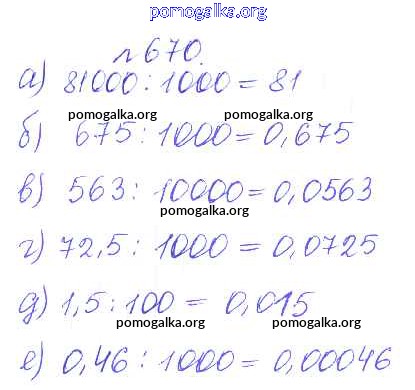 pomogalka.org
№670.
а) 81000 : 1000 = 81
pomogalka.org pomogalka.org
б) 675 : 1000 = 0,675
в) 563 : 10000 = 0,0563
pomogalka.org
г) 72,5 : 1000 = 0,0725
д) 1,5 : 100 = 0,015
pomogalka.org pomogalka.org
е) 0,46 : 1000 = 0,00046